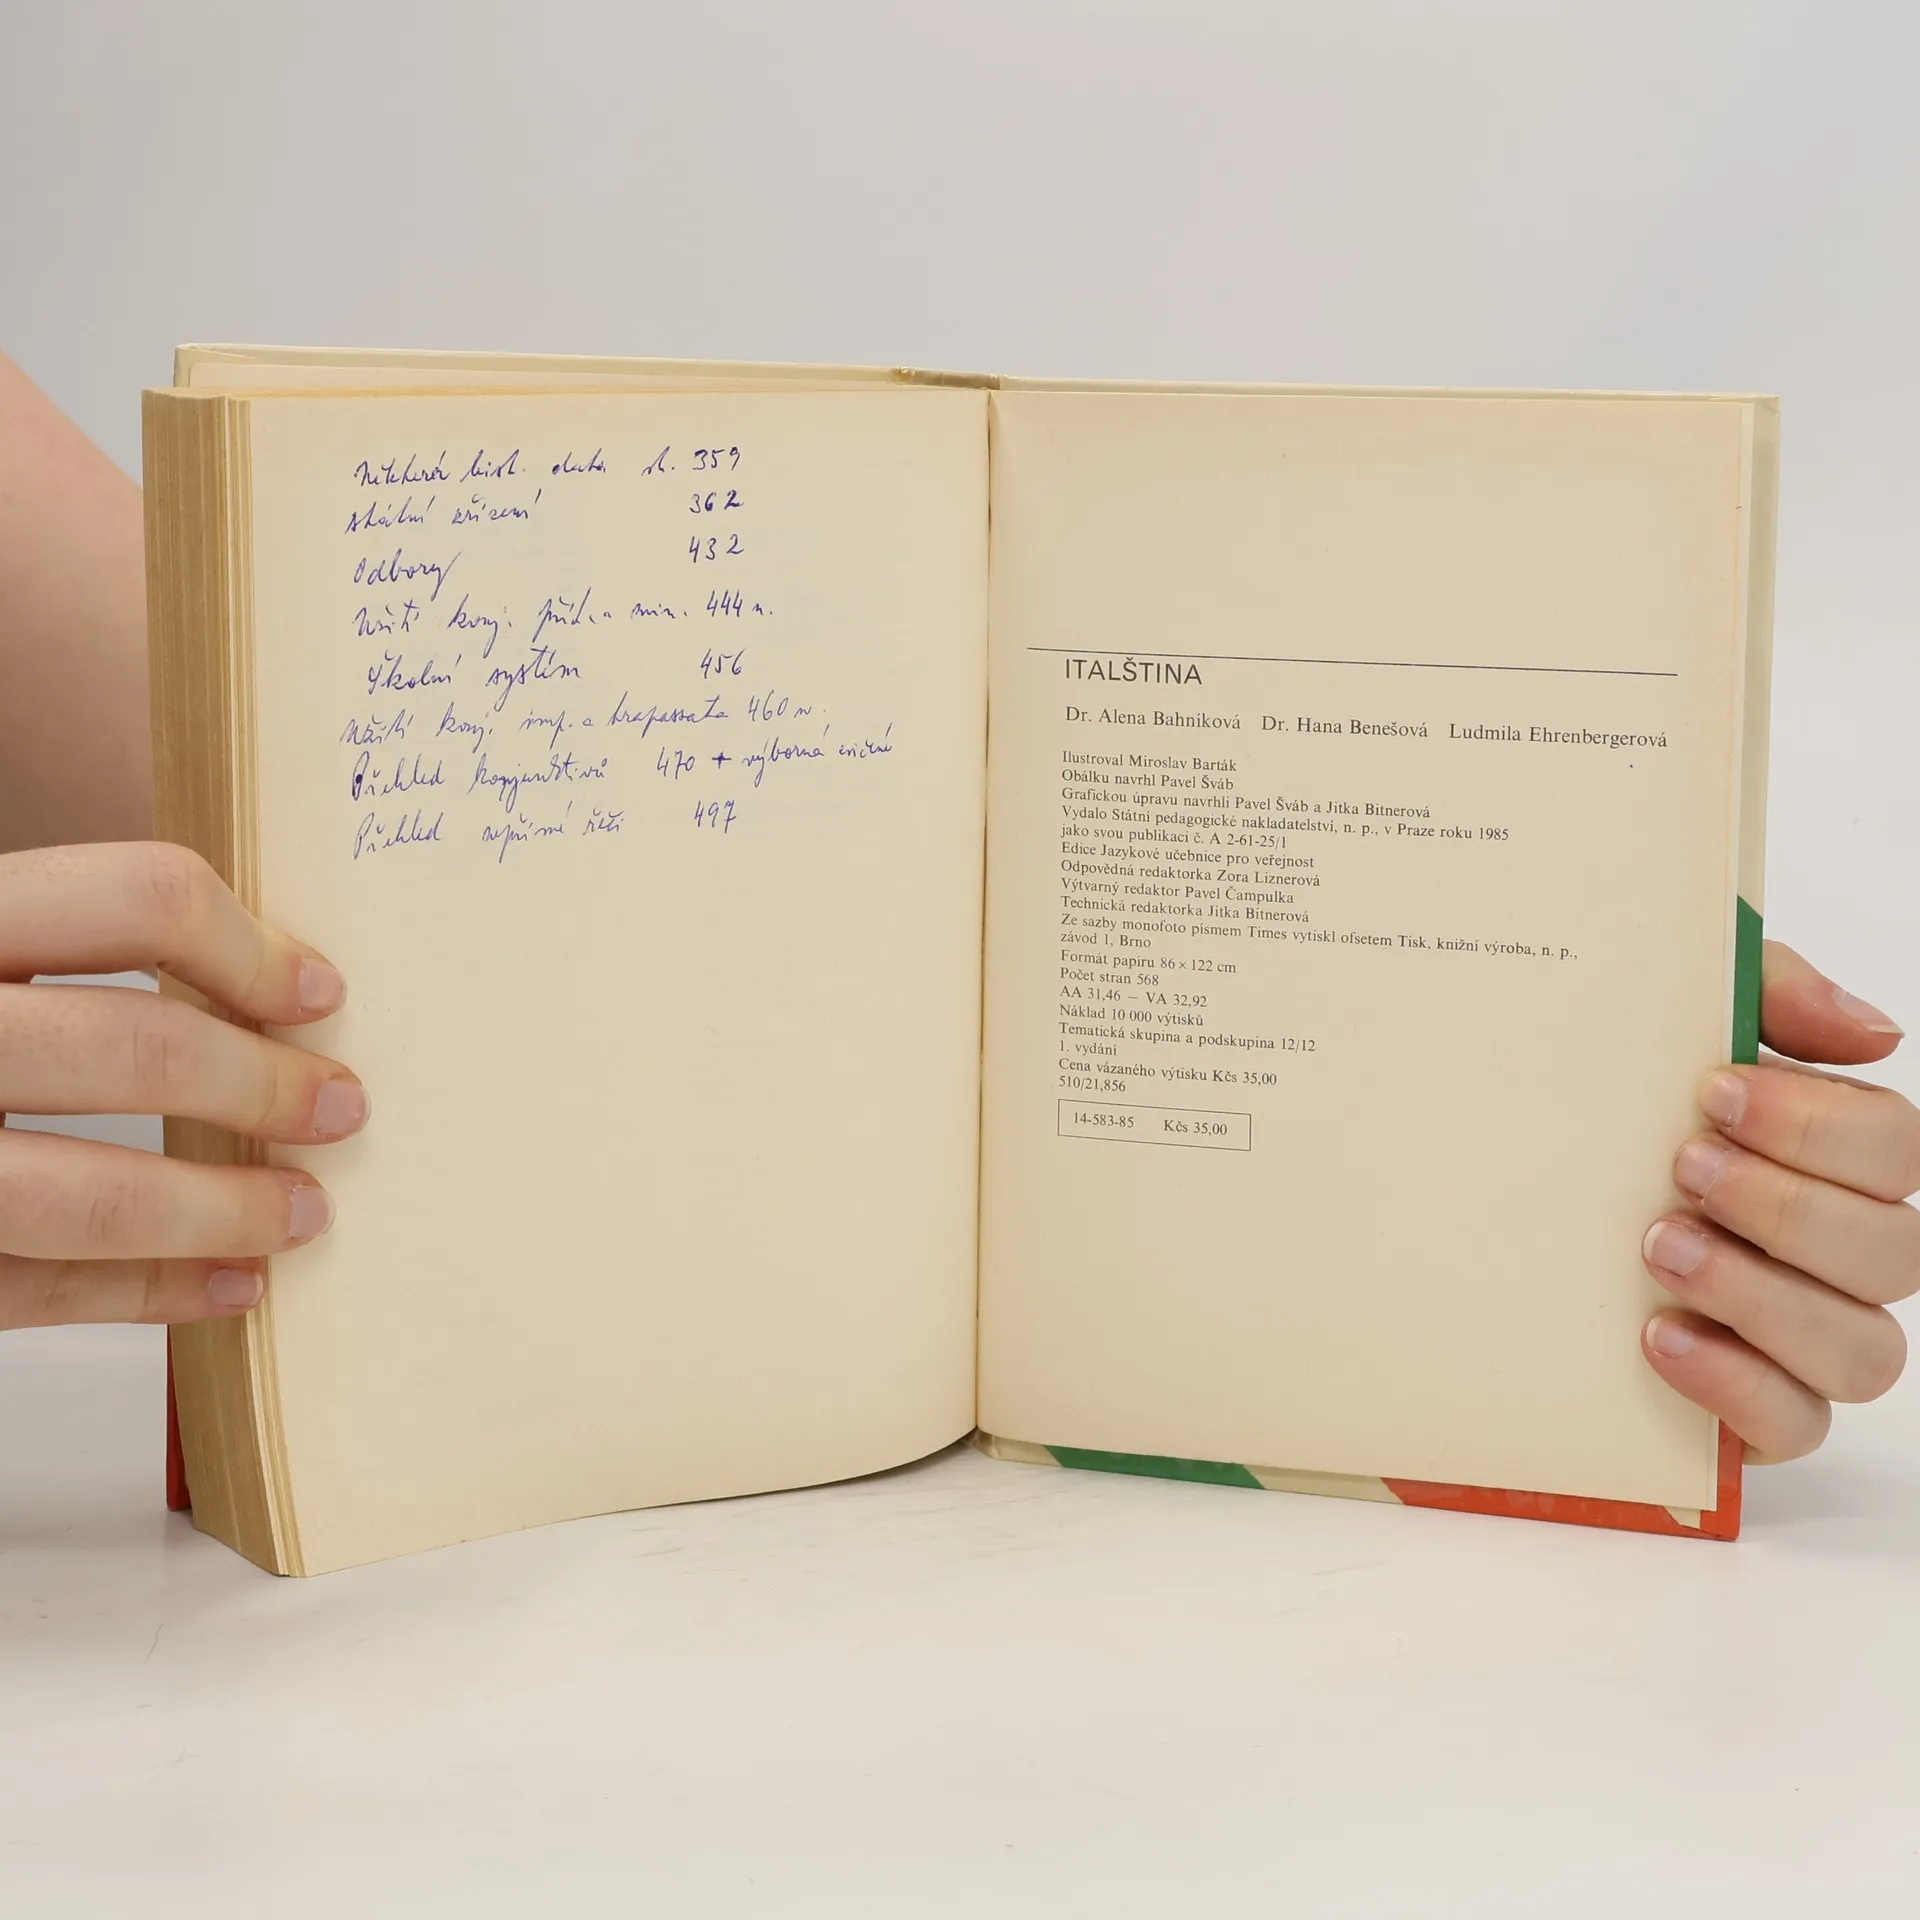 Některá hist. data st. 359
státní zřízení 362
Odbory 432
Užití konj. příz. a min. 444 n.
Školní systém 456
Užití konj. imp. a trapassata 460 n.
Přehled konjunktivů 470 + výborná cvičení
Přehled nepřímé řeči 497
ITALŠTINA
Dr. Alena Bahníková Dr. Hana Benešová Ludmila Ehrenbergerová
Ilustroval Miroslav Barták
Obálku navrhl Pavel Šváb
Grafickou úpravu navrhli Pavel Šváb a Jitka Bitnerová
Vydalo Státní pedagogické nakladatelství, n. p., v Praze roku 1985
jako svou publikaci č. A 2-61-25/1
Edice Jazykové učebnice pro veřejnost
Odpovědná redaktorka Zora Liznerová
Výtvarný redaktor Pavel Čampulka
Technická redaktorka Jitka Bitnerová
Ze sazby monofoto písmem Times vytiskl ofsetem Tisk, knižní výroba, n. p.,
závod 1, Brno
Formát papíru 86 × 122 cm
Počet stran 568
AA 31,46 – VA 32,92
Náklad 10 000 výtisků
Tematická skupina a podskupina 12/12
1. vydání
Cena vázaného výtisku Kčs 35,00
510/21,856
14-583-85 Kčs 35,00